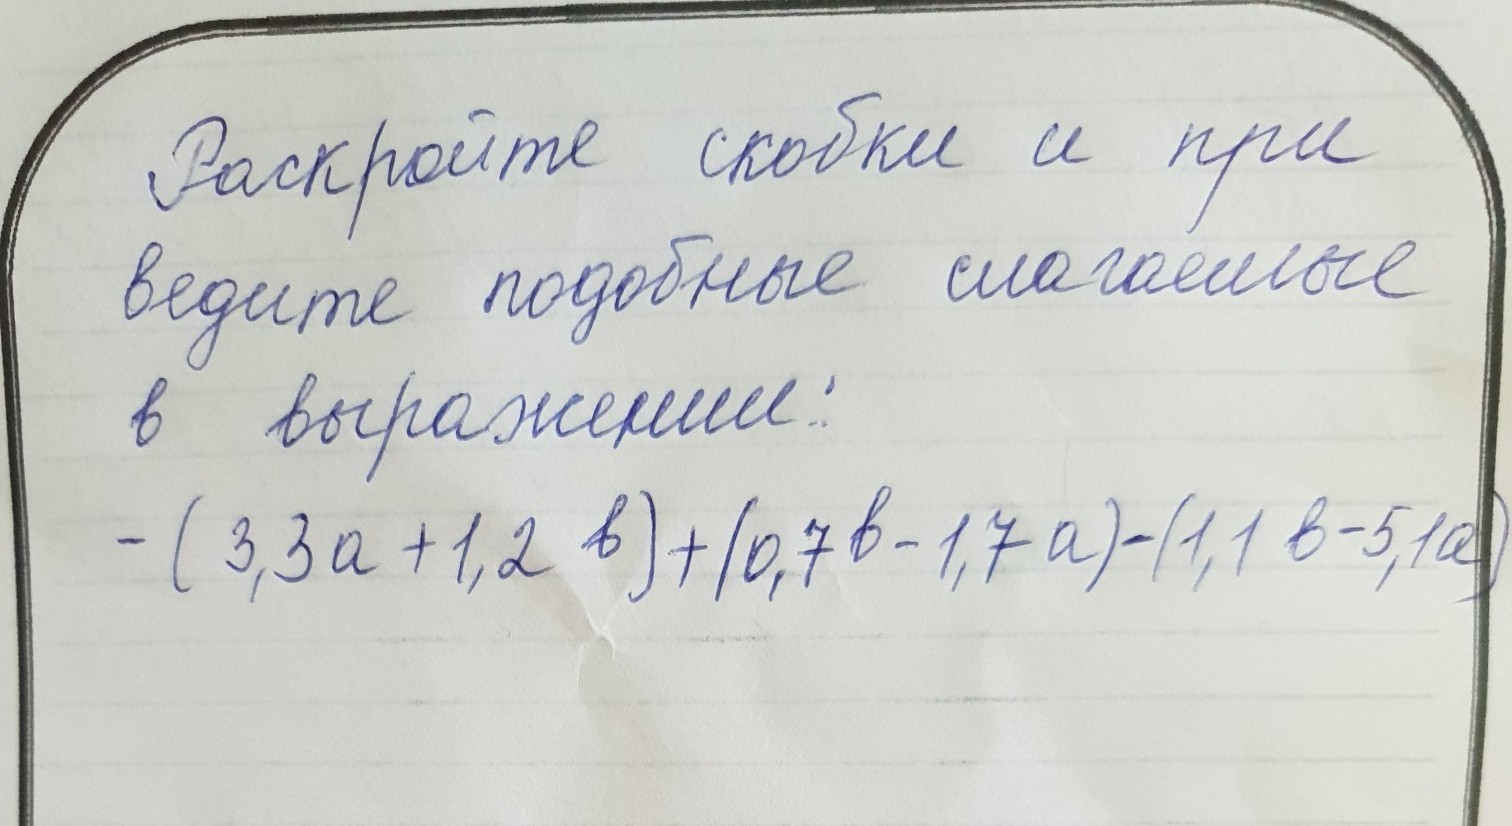 Раскройте скобки и при
ведите подобные слагаемые
в выражении:
-(3,3а+1,2 в)+(0,7в-1,7а)-(1,1 в-5,1а)